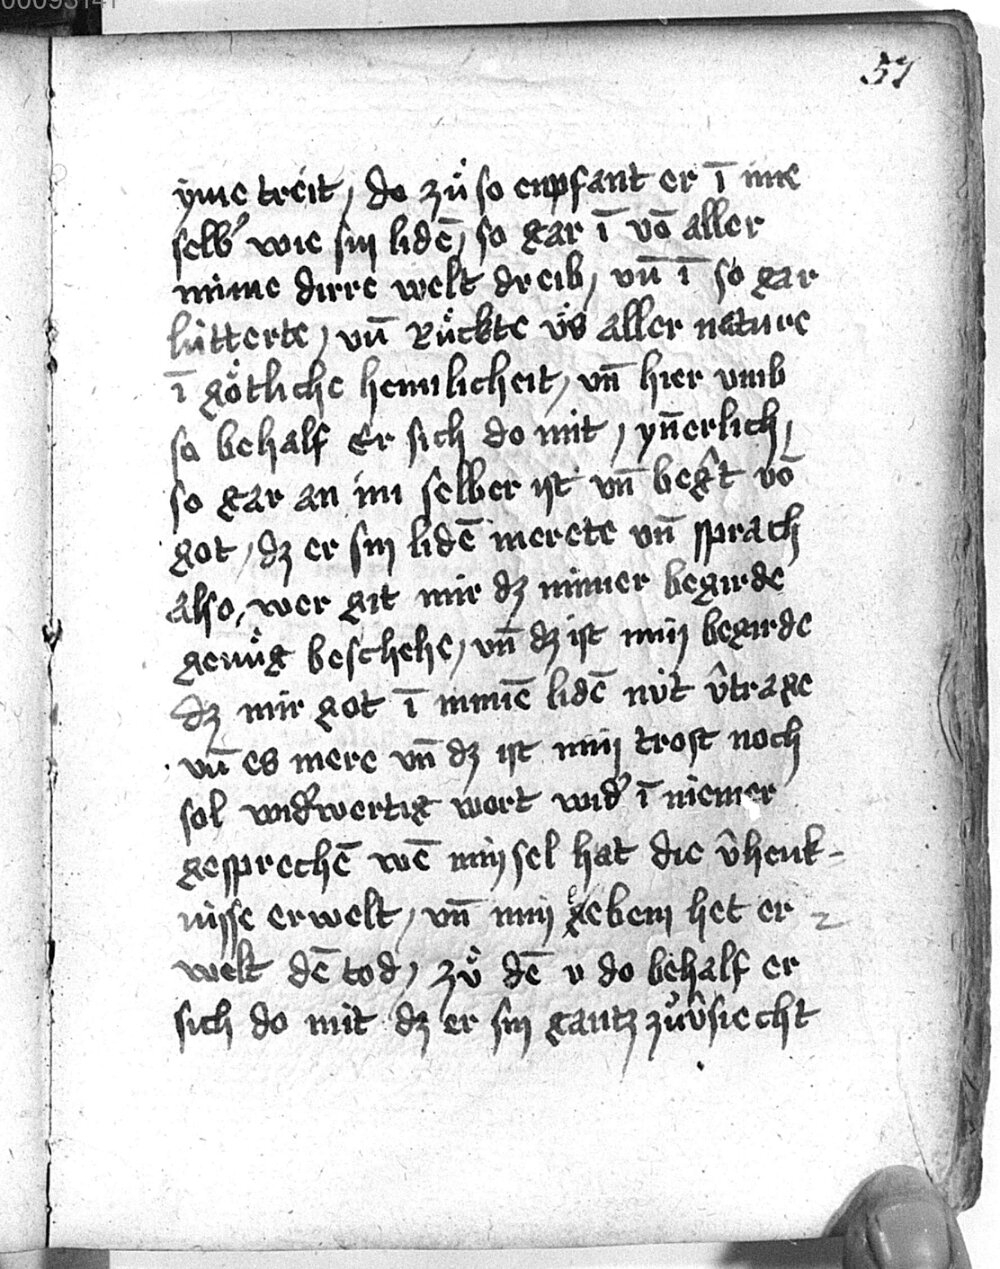 57
yme treit / do zuͦ so enpfant er ī ime
selb' wie sin lidē / so gar ī vō aller
minne dirre welt dreib / vn̄ ī so gar
lútterte / vn̄ Ruͤckte vͦs aller nature
ī goͤtliche hemilicheit / vn̄ hier vmb
so behalf er sich do mit / yn̄erlich /
so gar an im selber ist vn̄ beg̑t vō
got / dz er sin lidē merete vn̄ sprach
also / wer git mir dz minner begirde
genuͦg beschehe / vn̄ dz ist min begirde
dz mir got ī minē lidē nút v̑trage
vn̄ es mere vn̄ dz ist min trost noch
sol wid'wertig wort wid' ī niemer
gesprechē wē min sel hat die v̑henk-
nisse erwelt / vn̄ min gebein het er
welt dē tod / zuͦ dē v do behalf er
sich do mit dz er sin gantz zuͦv̑siecht